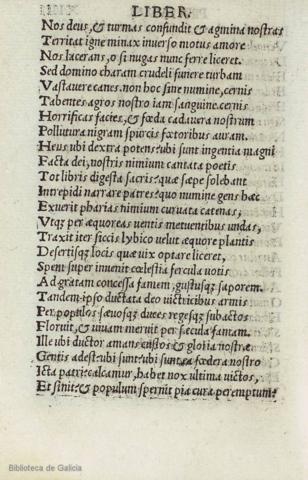 LIBER.
Nos deus, & turmas confundit & agmina nostras
Territat igne minax inuerso motus amore
Nos lacerans, o si nugas nunc ferre liceret.
Sed domino charam crudeli funere turbam
Vastauere canes. non hoc sine numine, cernis
Tabentes agros nostro iam sanguine. cernis
Horrificas facies, & fœda cadauera nostrum
Pollutura nigram spurcis fœtoribus auram.
Heus ubi dextra potens? ubi sunt ingentia magni
Facta dei, nostris nimium cantata poetis
Tot libris digesta sacris? quæ sæpe solebant
Intrepidi narrare patres? quo numine gens hæc
Exuerit pharias nimium curuata catenas,
Vtq; per æquoreas uentis metuentibus undas,
Traxit iter siccis lybico uelut æquore plantis
Desertisq; locis quæ uix optare liceret,
Spem super inuenit cœlestia fercula uotis
Ad gratam concessa famem, gustusq; saporem.
Tandem ipso ductata deo uictricibus armis
Per populos sæuosq; duces regesq; subactos
Floruit, & uiuam meruit per sæcula famam.
Ille ubi ductor amans custos & gloria nostræ
Gentis adest? ubi sunt? ubi sunt ea fœdera nostro
Icta patri? calcamur, habet nox ultima uictos,
Et sinit? & populum spernit pia cura peremptum?
Biblioteca de Galicia